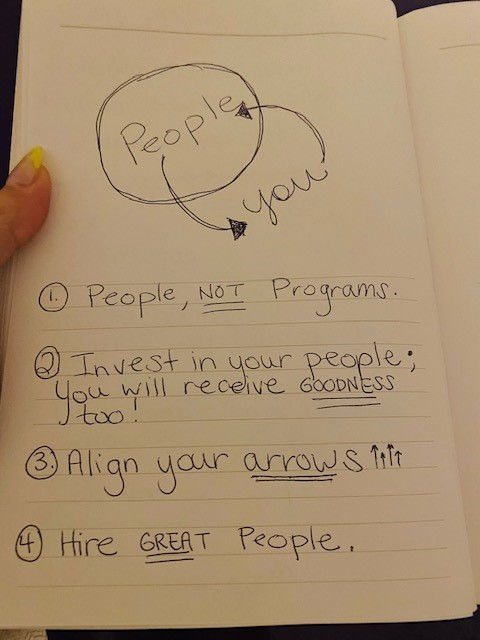 People
you
1. People, NOT Programs.
2 Invest in your people;
you will receive GOODNESS
too!
3. Align your arrows ↑↑↑↑
4 Hire GREAT People.